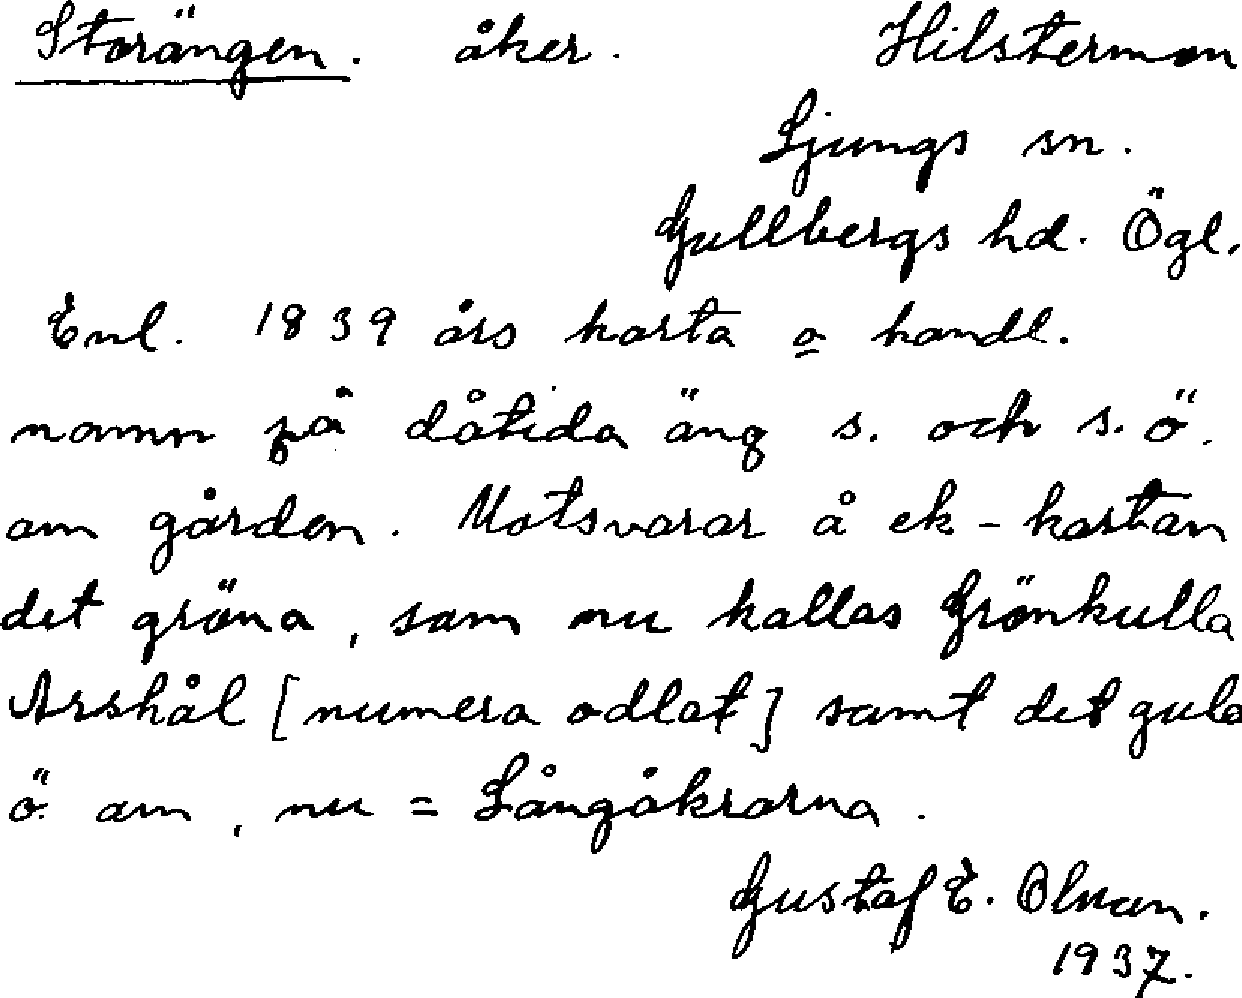 Storängen. åker. Hilsterman
Ljungs sn.
Gullbergs hd. Ögl.
Enl. 1839 års karta o handl.
namn på dåtida äng s. och s.ö.
om gården. Motsvarar å ek-kartan
det gröna, som nu kallas Grönkulla
Arshål [numera odlat] samt det gula
ö. om, nu = Långåkrarna.
Gustaf E. Olman.
1937.